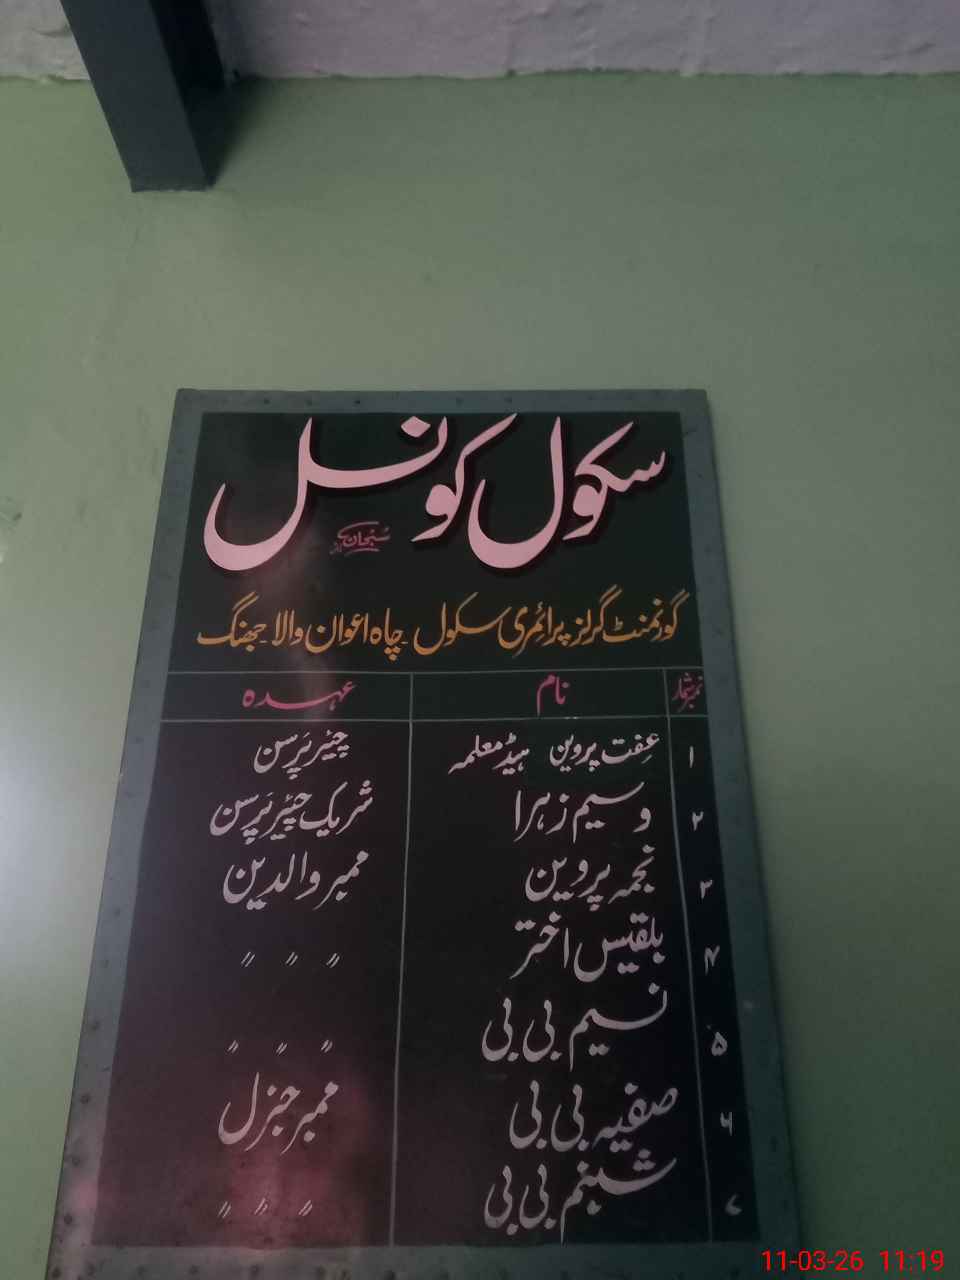 سکول کونسل
سبحان آرٹ
گورنمنٹ گرلز پرائمری سکول ۔ چاہ اعوان والا ۔ جھنگ
نمبر شمار نام عہدہ
۱ عِفت پروین ہیڈ معلمہ چیئر پَرسن
۲ وسیم زہرا شریک چیئر پَرسن
۳ نجمہ پروین ممبر والدین
۴ بلقیس اختر 〃 〃 〃
۵ نسیم بی بی 〃 〃 〃
۶ صفیہ بی بی ممبر جنرل
۷ شبنم بی بی 〃 〃 〃
11-03-26 11:19